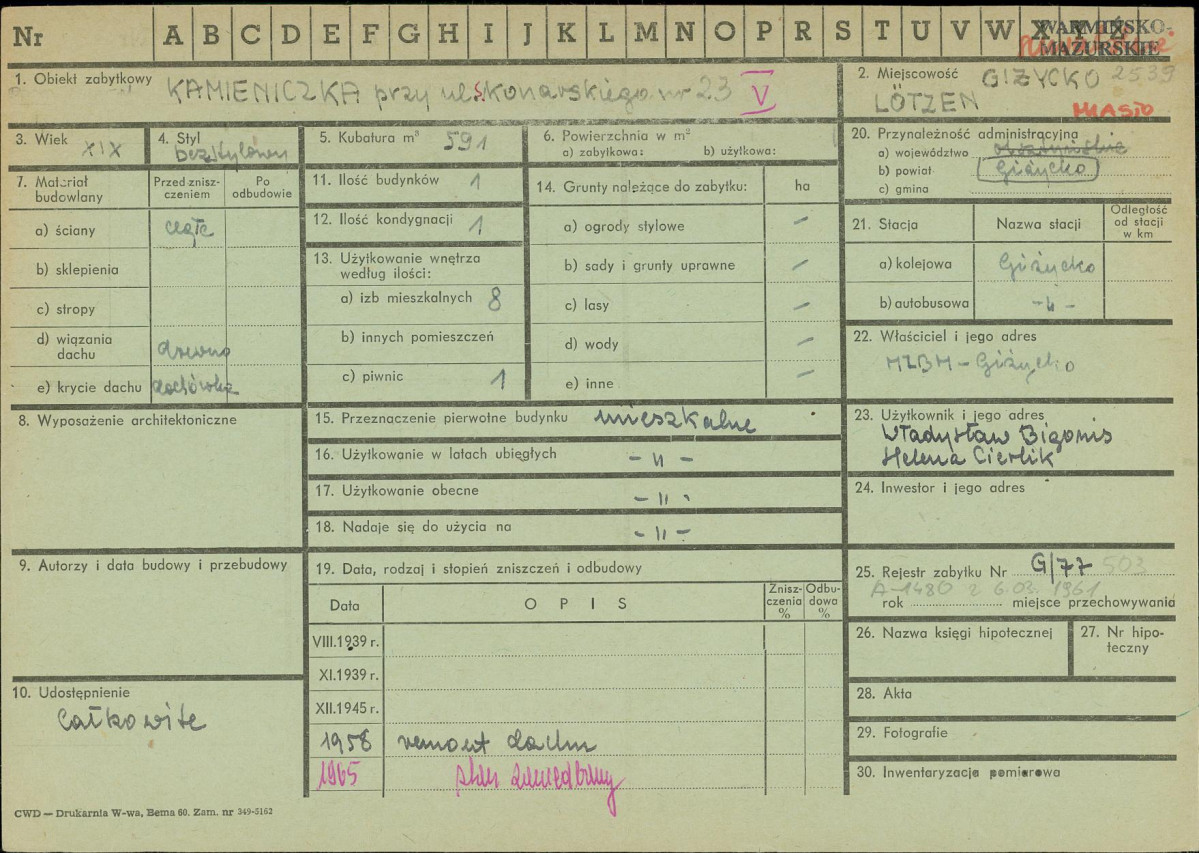 Nr A B C D E F G H I J K L M N O P R S T U V W X Y Z Ż
WARMIŃSKO-
MAZURSKIE
1. Obiekt zabytkowy KAMIENICZKA przy ul. Konarskiego nr 23 V
2. Miejscowość GIŻYCKO 2539
LÖTZEN MIASTO
3. Wiek XIX
4. Styl bezstylowy
5. Kubatura m³ 591
6. Powierzchnia w m²
a) zabytkowa: b) użytkowa:
20. Przynależność administracyjna
a) województwo olsztyńskie
b) powiat Giżycko
c) gmina
7. Materiał budowlany
Przed znisz-
czeniem
Po
odbudowie
a) ściany cegła
b) sklepienia
c) stropy
d) wiązania
dachu drewno
e) krycie dachu dachówka
11. Ilość budynków 1
12. Ilość kondygnacji 1
13. Użytkowanie wnętrza
według ilości:
a) izb mieszkalnych 8
b) innych pomieszczeń
c) piwnic 1
14. Grunty należące do zabytku: ha
a) ogrody stylowe –
b) sady i grunty uprawne –
c) lasy –
d) wody –
e) inne –
21. Stacja Nazwa stacji
Odległość
od stacji
w km
a) kolejowa Giżycko
b) autobusowa -"-
22. Właściciel i jego adres
MZBM - Giżycko
8. Wyposażenie architektoniczne
15. Przeznaczenie pierwotne budynku mieszkalne
16. Użytkowanie w latach ubiegłych - " -
17. Użytkowanie obecne - " -
18. Nadaje się do użycia na - " -
23. Użytkownik i jego adres
Władysław Bigonis
Helena Cierlik
24. Inwestor i jego adres
9. Autorzy i data budowy i przebudowy
19. Data, rodzaj i stopień zniszczeń i odbudowy
Data OPIS
Znisz-
czenia
%
Odbu-
dowa
%
VIII.1939 r.
XI.1939 r.
XII.1945 r.
1958 remont dachu
1965
10. Udostępnienie
Całkowite
25. Rejestr zabytku Nr G/77 503
A-1480 z 6.03.1961
rok miejsce przechowywania
26. Nazwa księgi hipotecznej
27. Nr hipo-
teczny
28. Akta
29. Fotografie
30. Inwentaryzacja pomiarowa
CWD — Drukarnia W-wa, Bema 60. Zam. nr 349-5162